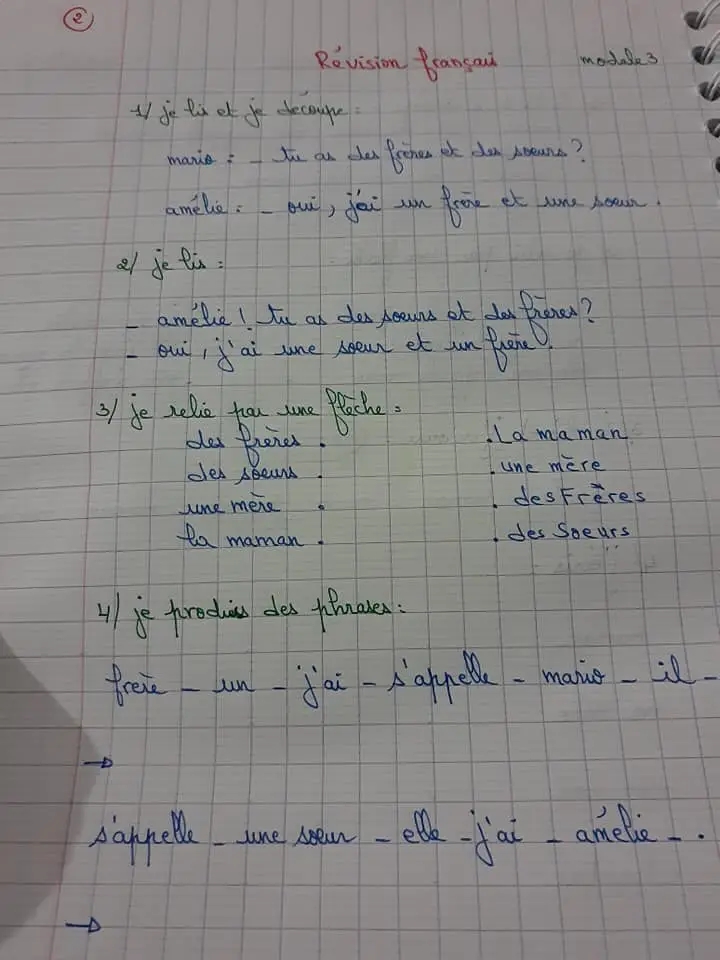 2
Révision françai module 3
1/ je lis et je découpe :
mario : - tu as des frères et des soeurs ?
amélie : - oui, j'ai un frère et une soeur .
2/ je lis :
- amélie ! tu as des soeurs et des frères ?
- oui, j'ai une soeur et un frère .
3/ je relie par une flèche :
des frères . . La maman
des soeurs . . une mère
une mère . . des Frères
la maman . . des Soeurs
4/ je produis des phrases :
frère - un - j'ai - s'appelle - mario - il -
→
s'appelle - une soeur - elle - j'ai - amélie - .
→